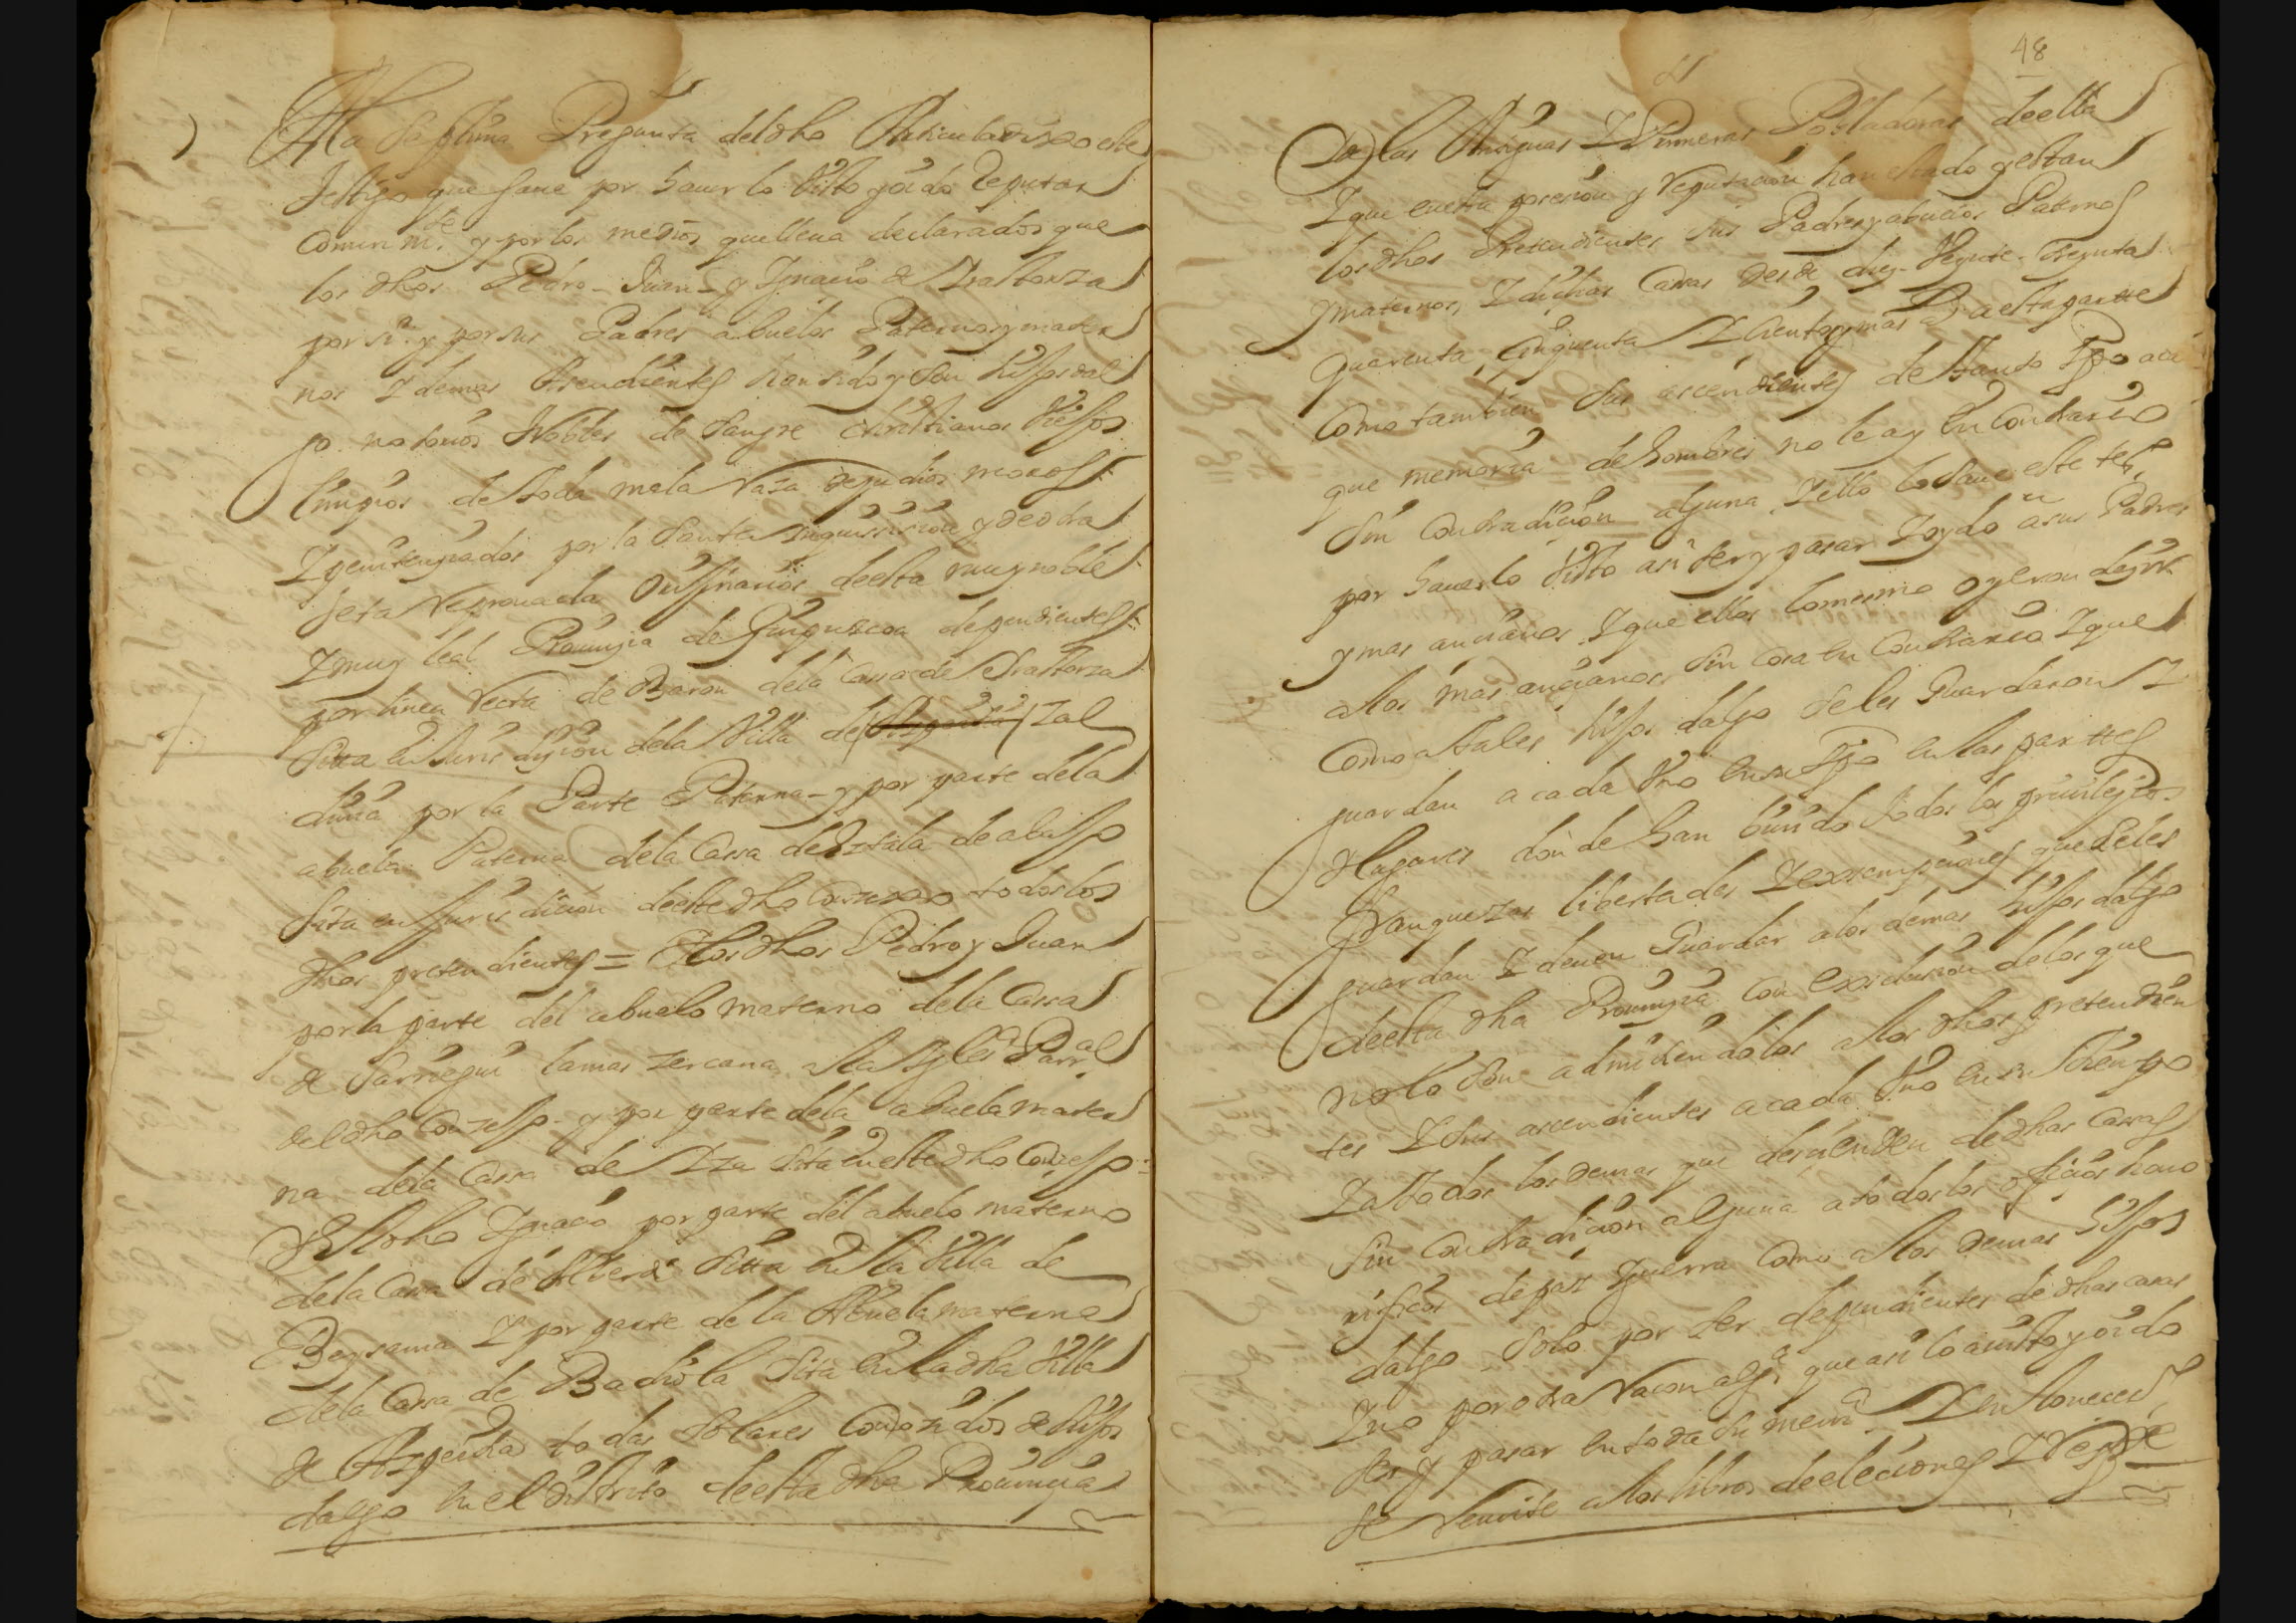 A la septima Pregunta del dho Articulado dixo este
testigo que save por haver lo visto y oido Reputar
Comun mte y por los medios que lleva declarados que
los dhos Pedro - Juan - y Ygnacio de Ydastorza
por si y por sus Padres abuelos Paternos y mater
nos Y demas Asendientes han sido y son hijos dal
go notorios Nobles de sangre christianos viejos
limpios de toda mala Raza de judios moros
Y penitenziados por la Santa Ynquisicion y de otra
seta Reprovada Orijinarios de esta muy noble
Y muy leal Provinzia de Guipuzcoa dependientes
por linea Recta de Baron de la Cassa de
Sitta en Jurisdizion de la Villa de Azpeitia Zal
divia por la Parte Paterna - y por parte de la
abuela Paterna de la Cassa de de
sita en Jurisdicion de este dho Conzexo todos los
dhos pretendientes = A los dhos Pedro y Juan
por la parte del abuelo materno de la Cassa
de Sarriegui la mas zercana a la Yglesia Parral
del dho Conzejo - y por parte de la abuela mater
na de la Cassa de Yza sita en este dho Conzejo
El dho Ygnacio por parte del abuelo materno
de la Cassa de sitta en la Villa de
Beysama Y por parte de la Abuela materna
de la Cassa de Badiola sita en la dha Villa
de Azpeitia todas solares Conozidos de hijos
dalgo en el distrito de esta dha Provinzia
48
De las Antiguas Y Primeras Pobladoras de ella
Y que en esta posesion y Reputacion han estado y estan
los dhos Pretendientes sus Padres y abuelos Paternos
y maternos, Y dichas Cassas desde diez - Veynte - treynta
quarenta, Cinquenta Y Ciento y mas as a esta parte
Como tambien sus ascendientes de tanto tpo aca
que memoria de hombres no le ay en Contrario
sin Contradicion alguna Y ello lo save este testo
por haverlo visto asi ser y pasar Y oydo a sus Padres
y mas ancianos Y que ellos lo mesmo oyeron dezir
a los mas ancianos sin cosa en Contrario Y que
Como a tales hijos dalgo se les Guardaron Y
guardan a cada Uno en su tpo en las parttes
Y lugares donde han bivido todos los privilejios
franquezas libertades Y exsempciones que se les
guardan Y deven Guardar a los demas hijos dalgo
de esta dha Provinzia con exsclusion de los que
no lo son admitiendolos a los dhos pretendien
tes Y sus ascendientes a cada Uno en su tiempo
Y a todos los demas que desienden de dhas Casas
sin Contradicion alguna a todos los ofizios hono
rificos de paz Y guerra Como a los demas hijos
dalgo solo por ser dependientes de dhas casas
Y no por otra Razon alga que asi lo a visto y oido
ser y pasar en toda su mema Y en lo
se Remite a los libros de eleciones Y Resp.de